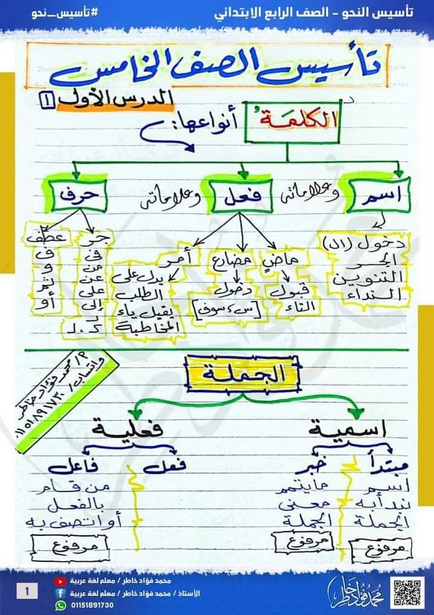 تأسيس النحو - الصف الرابع الابتدائي
#تأسيس_نحو
تأسيس الصف الخامس
الدرس الأول 1
الكلمة أنواعها:
اسم وعلاماته فعل وعلاماته حرف
دخول (ال)
الجر
التنوين
النداء
ماضٍ
قبول
التاء
مضارع
دخول
[س، سوف]
أمر
يدل على
الطلب
يقبل ياء
المخاطبة
جر
في
من
على
إلى
عطف
و
ف
ثم
أو
م/ محمد فؤاد خاطر
واتساب/ 01151891730
الجملة
اسمية فعلية
مبتدأ
اسم
نبدأ به
الجملة
مرفوع
خبر
ما يتمم
معنى
الجملة
مرفوع
فعل
فاعل
من قام
بالفعل
أو اتصف به
مرفوع
محمد فؤاد خاطر / معلم لغة عربية
الأستاذ / محمد فؤاد خاطر / معلم لغة عربية
01151891730
محمد فؤاد خاطر
1